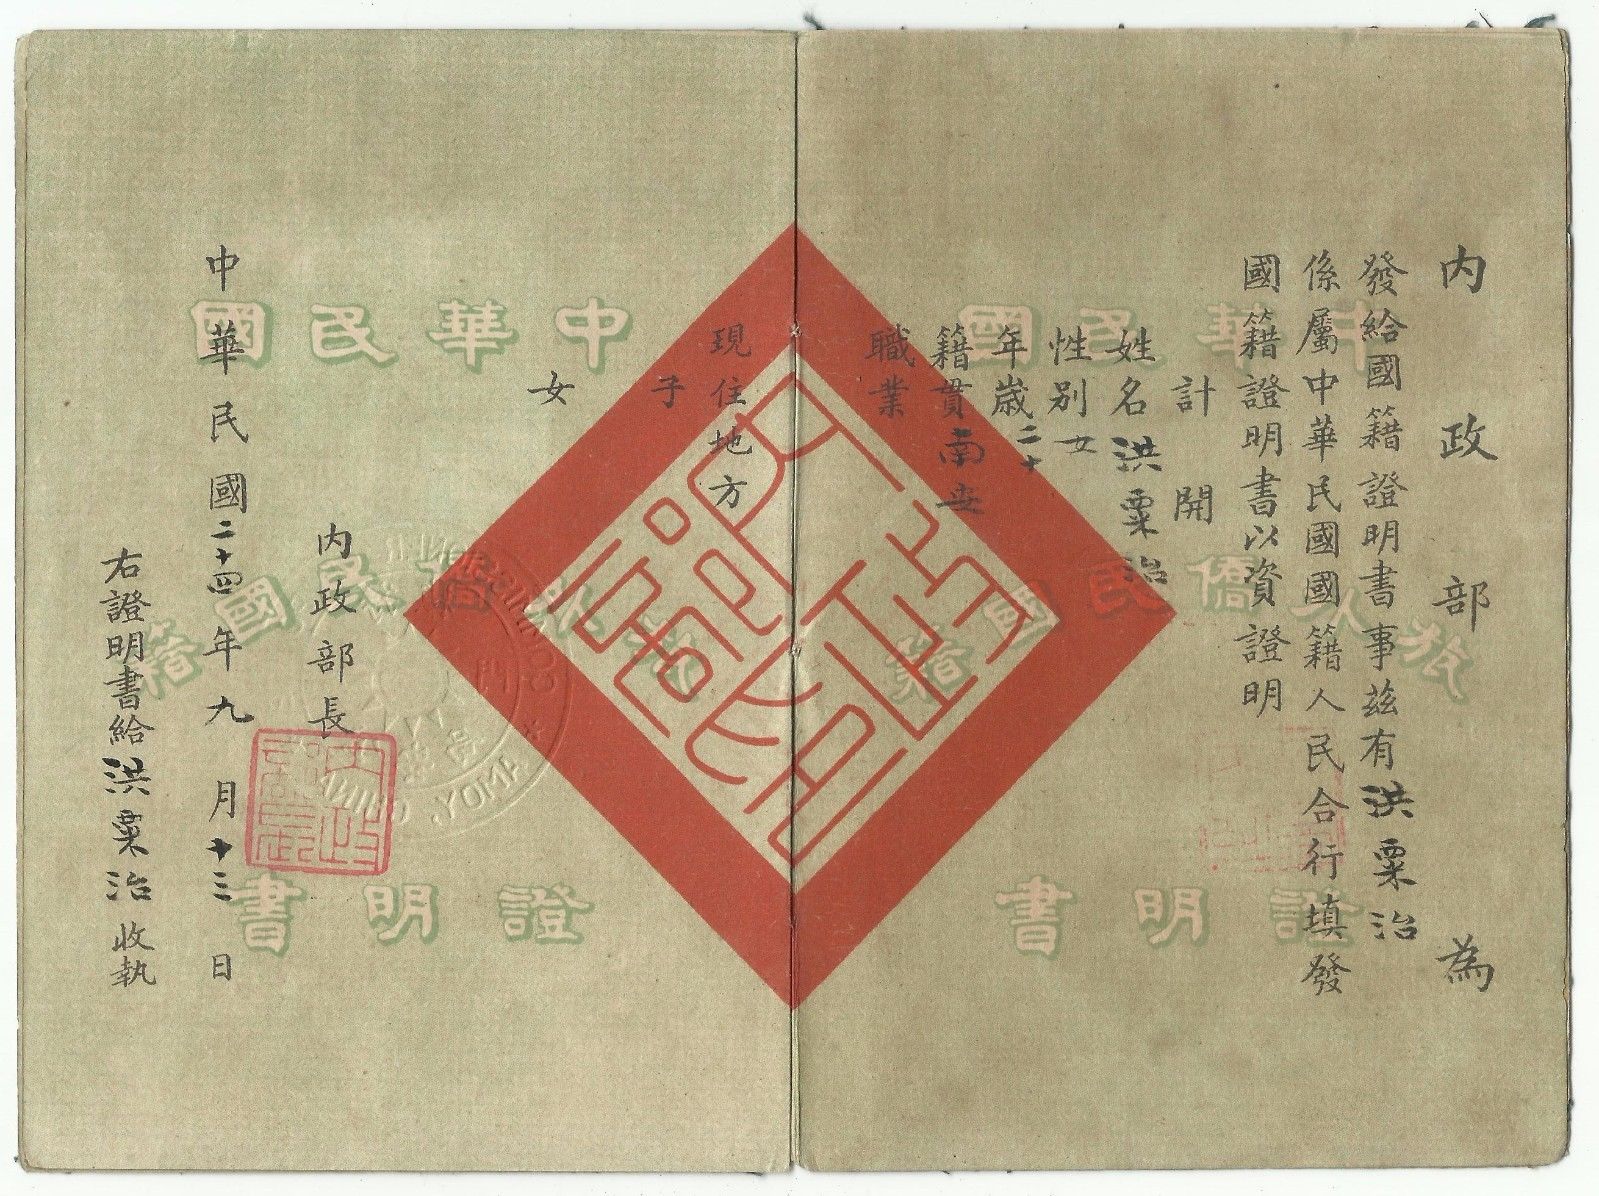 內政部為
發給國籍證明書事茲有洪粟治
係屬中華民國國籍人民合行填發
國籍證明書以資證明
計開
姓名洪粟治
性別女
年歲二十
籍貫南安
職業
現住地方
子
女
內政部長
中華民國二十四年九月十三日
右證明書給洪粟治收執
中華民國
旅外僑民國籍
證明書
中華民國
旅外僑民國籍
證明書
AMOY, CHINA